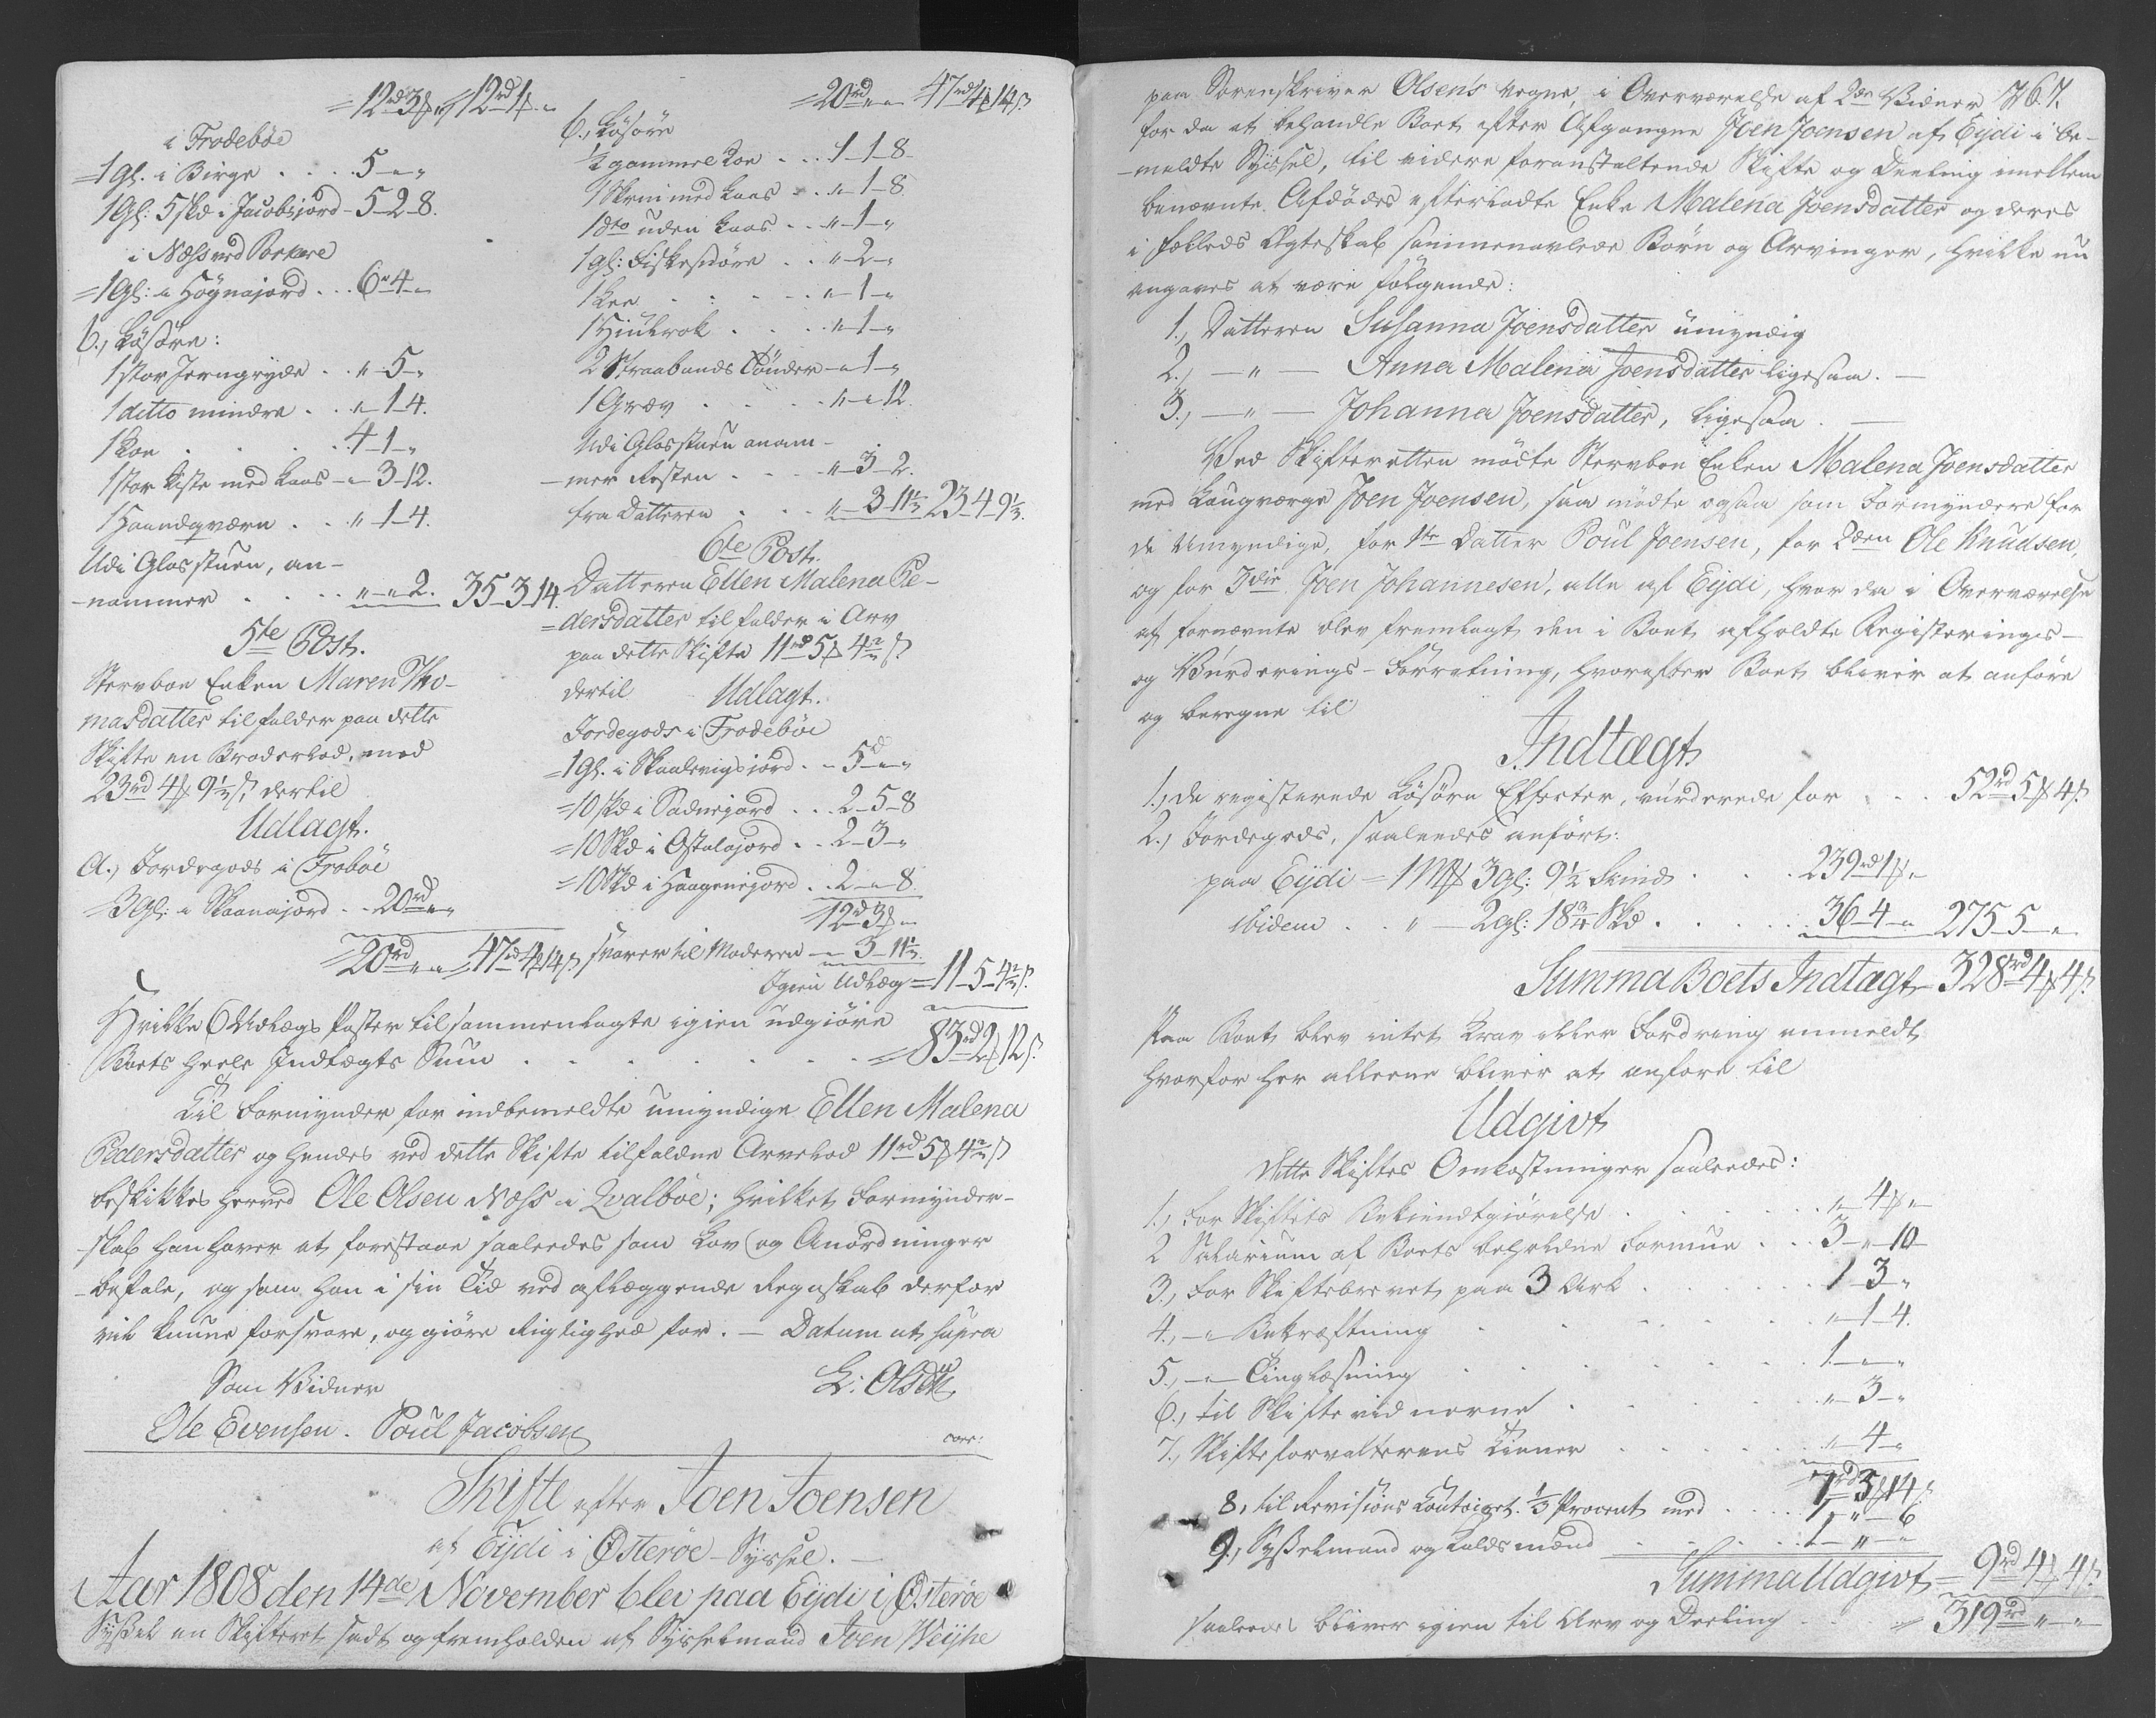 =12rd3ß„ =12rd1ß„
i Frodebøe
=1 Gl. i Birge . . . . 5„-„
1 Gl: 5 Skd i Jacobsjord - 5-2-8.
i Næss ved Porkere
=1 Gl: i Høgnajord . . . 6„4-„
b., Løsøre:
1 stor Jerngryde . . „-5-„
1 ditto mindre . . „-1-4.
1 Koe . . . . 4-1-„
1 stor Kiste med Laas - „-3-12.
1 Haandqværn . . „-1-4.
Udi Glasstuen, an-
-nammer . . . . „-„-2. 35-3-14.
5te Post.
Stervboe Enken Maren Tho-
masdatter tilfalder paa dette
Skifte en Broderlod, med
23rd 4ß 9½ß, dertil
Udlagt.
a., Jordegods i Frobøe
=3 Gl: i Skaanajord . . 20rd„-„
=20rd„-„ =47rd4ß14ß
=20rd„-„ 47rd4ß14ß
b., Løsøre
½ gammel Koe . . . 1-1-8
1 Skrin med Laas . . „-1-8
1 dto uden Laas . . „-1-„
1 gl: Fiskesnøre . . „-2-„
1 Lee . . . . . „-1-„
1 Hiulrok . . . . „-1-„
2 Straabands Tønder - „-1-„
1 Græv . . . . . „-„-12.
Udi Glasstuen annam-
-mer Resten . . . „-3-2.
fra Datteren . . . „-3-11½ 23-4-9½.
6te Post.
Datteren Ellen Malena Pe-
=dersdatter tilfalder i Arv
paa dette Skifte 11rd 5ß 4½ß
dertil Udlagt.
Jordegods i Frodebøe
=1 Gl. i Skaalevigsjord . - 5rd„-„
=10 Skd i Sadnejord . . 2-5-8
=10 Skd i Ostalajord . . 2-3-„
=10 Skd i Haagenisjord . . 2-„-8
12rd3ß„
svarer til Moderen - „-3-11½.
Igien Udlæg = 11-5-4½ß.
Hvilke 6 Udlægs Poster tilsammenlagte igien udgiøre
Boets heele Indtægts Sum . . . . . . =83rd2ß12ß.
Til Formynder for indbemeldte umyndige Ellen Malena
Pedersdatter og hendes ved dette Skifte tilfaldne Arvelod 11rd 5ß 4½ß
beskikkes herved Ole Olsen Næss i Qvalbøe; hvilket Formynder-
-skab han haver at forestaae saaledes som Lov og Anordninger
-befale, og som han i sin Tid ved aflæggende Regnskab derfor
vil kunne forsvare, og giøre Rigtighed for. - Datum ut supra
Som Vidner
L: Olsen
Ole Evensen. Poul Jacobsen
Skifte efter Joen Joensen
af Eijdi i Østerøe - Syssel. -
Aar 1808 den 14de November blev paa Eijdi i Østerøe
Syssel en Skifteret sadt og fremholden af Sysselmand Joen Weijhe
paa Sorenskriver Olsen's Vegne, i Overværelse af 2de Vidner 767.
for da at behandle Boet efter Afgangne Joen Joensen af Eijdi i be-
-meldte Syssel, til videre foranstaltende Skifte og Deeling imellem
benævnte Afdødes efterladte Enke Malena Joensdatter og deres
i fælleds Ægteskab sammenavlede Børn og Arvinger, hvilke nu
angaves at være følgende:
1., Datteren Susanna Joensdatter umyndig
2., - „ - Anna Malena Joensdatter ligesaa. -
3., - „ - Johanna Joensdatter, ligesaa. -
Ved Skifteretten mødte Stervboe Enken Malena Joensdatter
med Laugværge Joen Joensen, saa mødte ogsaa som Formyndere for
de Umyndige, for 1ste Datter Poul Joensen, for 2den Ole Knudsen,
og for 3die Joen Johannesen, alle af Eijdi, hvor da i Overværelse
af fornævnte blev fremlagt den i Boet afholdte Registerings-
og Vurderings-Forretning, hvorefter Boet bliver at anføre
og beregne til
Indtægt
1., De registerede Løsøre Effecter, vurderede for . . . 52rd5ß4ß.
2., Jordegods, saaledes anført:
paa Eijdi = 1 Mß 3 gl: 9½ Skind . . . 239rd1ß„
ibidem . . „ - 2 gl: 18¾ Skd . . . . . 36-4-„ 275-5-„
Summa Boets Indtægt - 328rd4ß4ß.
Paa Boet blev intet Krav eller Fordring anmeldt
hvorfor her alleene bliver at anføre til
Udgivt
dette Skiftes Omkostninger saaledes:
1., For Skiftets Bekiendtgiørelse . . . . . . „-4ß„
2 Salarium af Boets beholdne Formue . . . 3-„-10
3., For Skiftebrevet paa 3 Ark . . . . . 1-3-„
4., - „ Bekræftning . . . . . . „-1-4.
5., - „ - Tinglæsning . . . . . 1-„-„
6., til Skifte vidnerne . . . . . „-3-„
7., Skifteforvalterens Tiener . . . . . „-4-„
7rd3ß14ß
8, til Revisions Contoiret ⅓ Procent med . . . 1-„-6
9., Sysselmand og kaldsmænd . . . . 1-„-„
Summa Udgivt = 9rd4ß4ß.
saaledes bliver igien til Arv og Deeling . . . = 319rd„-„